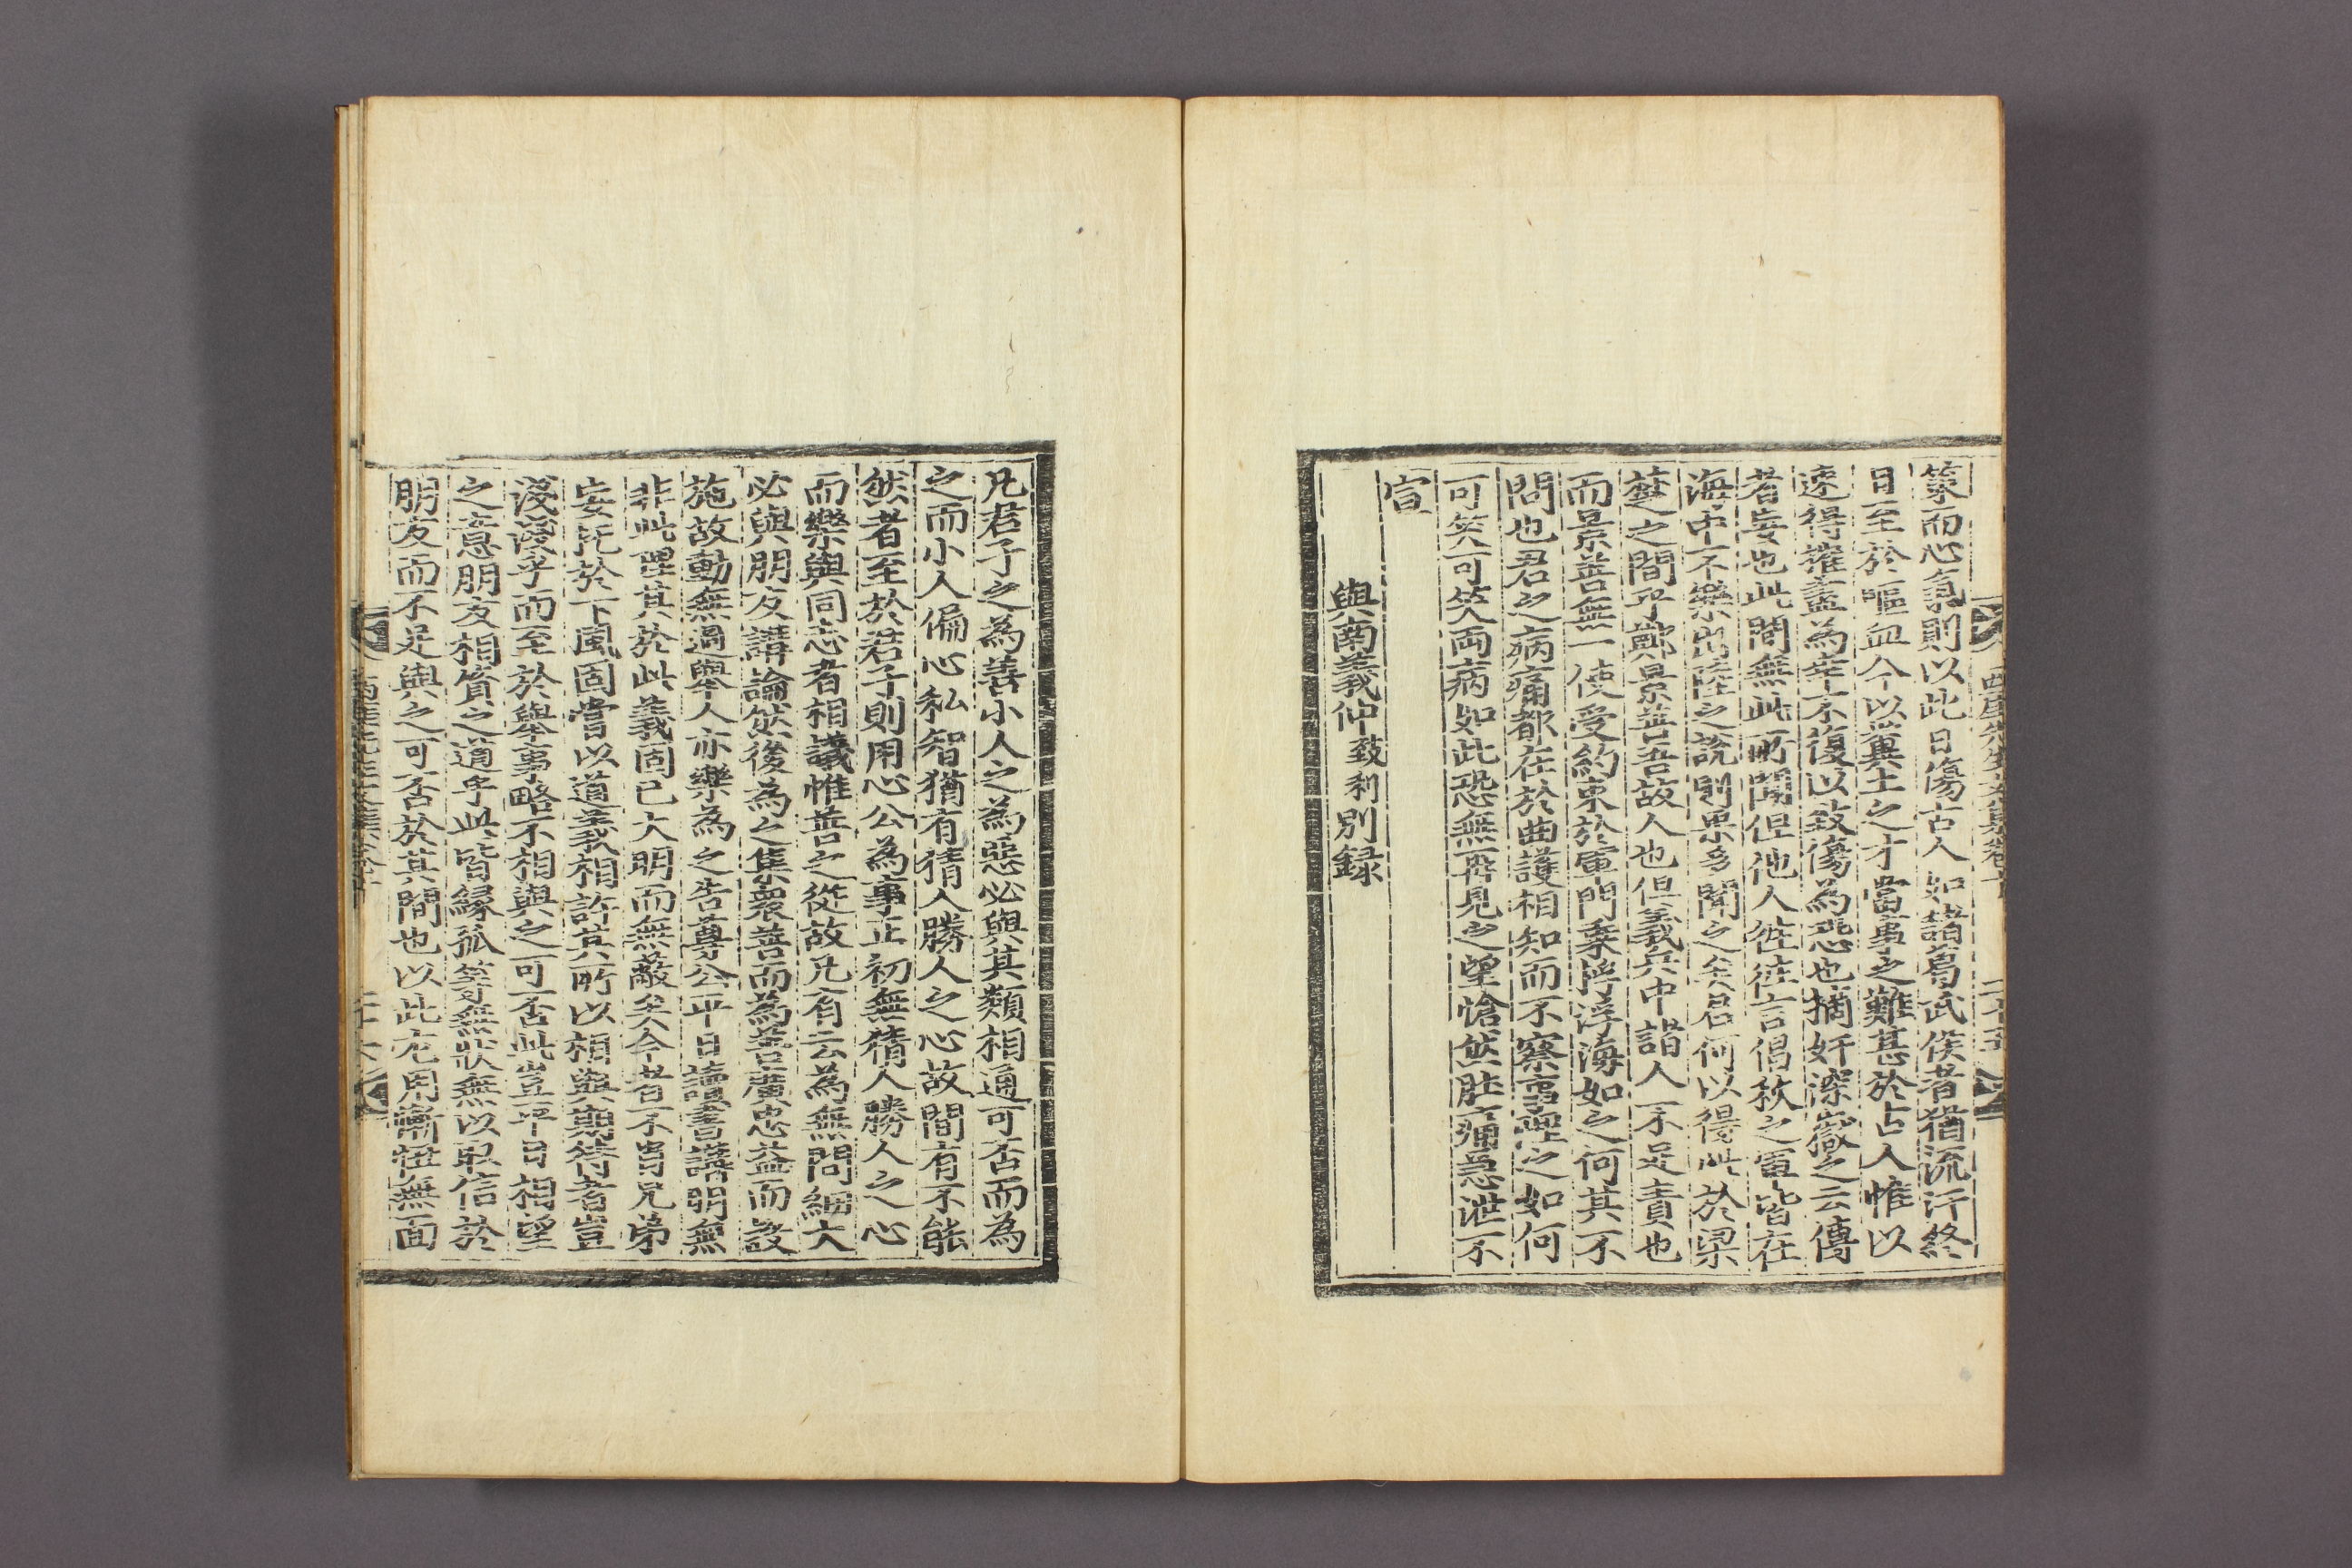 筭而心氣則以此日傷古人如諸葛武侯者猶流汗終
日至於嘔血今以冀土之才當事之難甚於古人惟以
速得摧盡為幸不復以致傷為恐也摘奸深嶽之云傳
者妄也此間無此所聞但他人往往言倡秋之軍皆在
海中不樂出陸之說則果多聞之矣君何以得此於梁
楚之間乎鄭景善吾故人也但義兵中諧人不足責也
而景善無一使受約束於軍門乗桴浮海如之何其不
問也君之病痛都在於曲護相知而不察事理之如何
可笑可笑両病如此恐無再見之望愴然肚痛急泄不
宣
與南義仲致利別録
凡君子之為善小人之為惡必與其類相適可否而為
之而小人偏心私智猶有猜人勝人之心故間有不能
然者至於君子則用心公為事正初無猜人勝人之心
而樂與同志者相議惟善之從故凡有云為無問細大
必與朋友講論然後為之集衆善而為善廣忠益而設
施故動無過擧人亦樂為之告尊公平日讀書講明無
非此理其於此義固已大明而無蔽矣今者不肖兄弟
妄托於下風固嘗以道義相許其所以相與期待者豈
淺淺乎而至於擧事略不相與之可否此豈平日相望
之意朋友相資之道乎此皆縁孤等無狀無以取信於
朋友而不足與之可否於其間也以此尤用慚忸無面